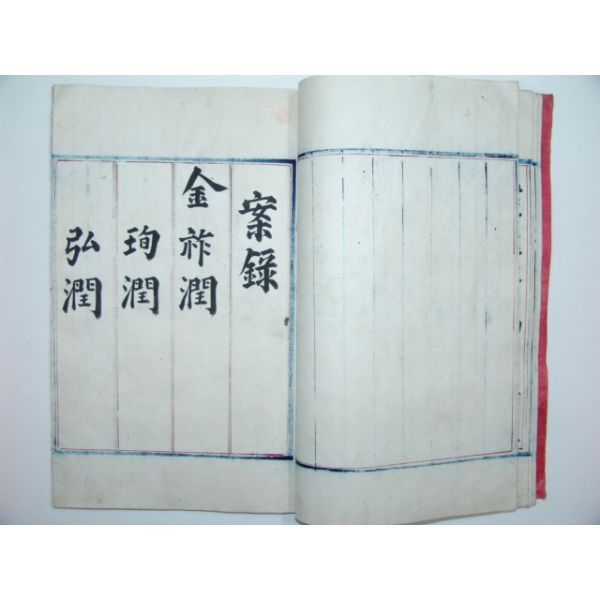 案錄
金祚潤
珣潤
弘潤